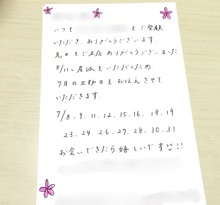 いつも をご愛顧
いただき、ありがとうございます。
先日もご来店ありがとうございました
8/11に産休をいただくため、
7月の出勤日をお伝えさせて
いただきます。
7/8.9.11.12.15.16.18.19
23.24.26.29.28.30.31
お会いできたら嬉しいです!!